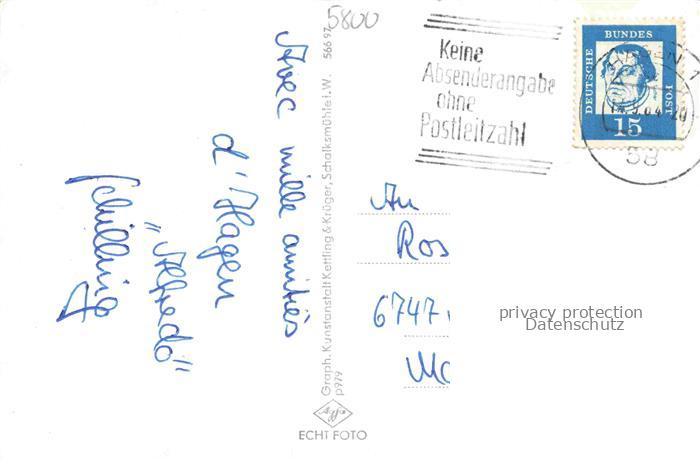 5800
Avec mille amitiés
d'Hagen
"Alfredo"
Schilling
566 97
Graph. Kunstanstalt Kettling & Krüger, Schalksmühle i. W.
P 979
Agfa
ECHT FOTO
Keine
Absenderangabe
ohne
Postleitzahl
DEUTSCHE BUNDES POST
15
58
An
Ros
6747
privacy protection
Datenschutz